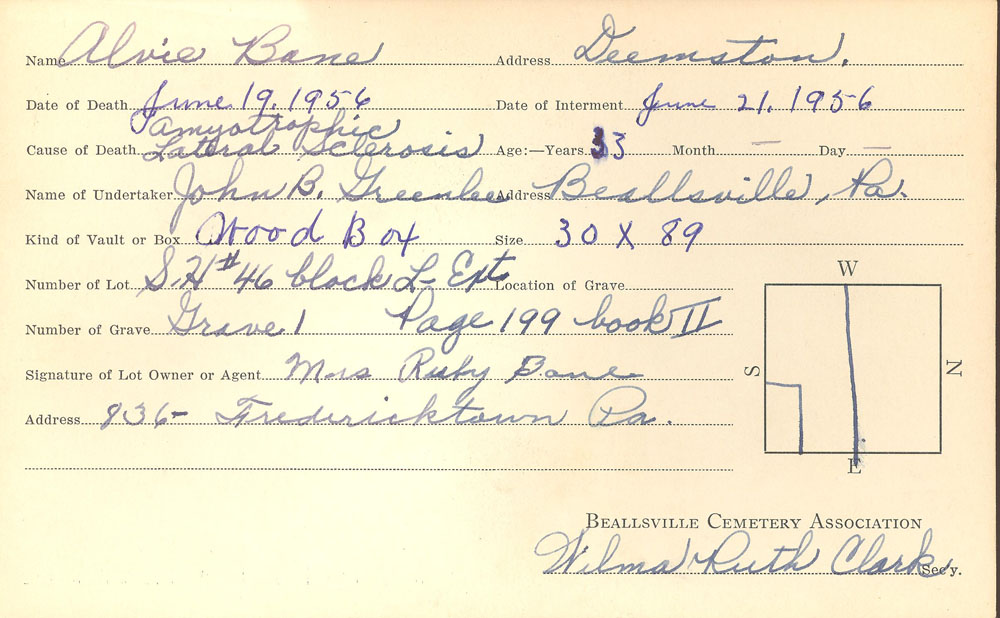 Name Alvie Bane Address Deemston.
Date of Death June 19, 1956 Date of Interment June 21, 1956
Amyotrophic
Cause of Death Lateral Sclerosis Age:—Years 33 Month — Day —
Name of Undertaker John B. Greenlee Address Beallsville, Pa.
Kind of Vault or Box Wood Box Size 30 X 89
Number of Lot S.H #46 block L- Ext Location of Grave
W
Number of Grave Grave 1 Page 199 book II
Signature of Lot Owner or Agent Mrs Ruby Bane
S N
Address 936- Fredericktown Pa.
E
BEALLSVILLE CEMETERY ASSOCIATION
Wilma Ruth Clark Sec'y.